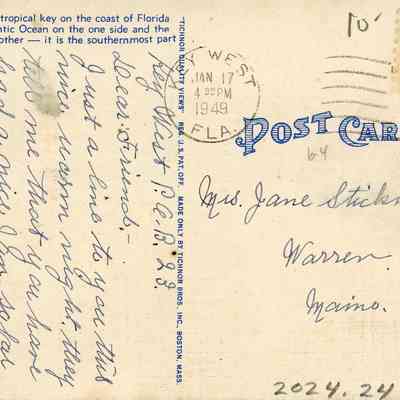 tropical key on the coast of Florida
ntic Ocean on the one side and the
other — it is the southernmost part
Key West P.O.B. 23
Dear Friend:-
Just a line to you this
nice warm night. they
tell me that you have
had a nice
"TICHNOR QUALITY VIEWS," REG. U.S. PAT. OFF. MADE ONLY BY TICHNOR BROS. INC., BOSTON, MASS.
10'
Y WEST
JAN 17
4 PM
1949
FLA.
POST CAR
64
Mrs. Jane Stickn
Warren
Maine.
2024.24